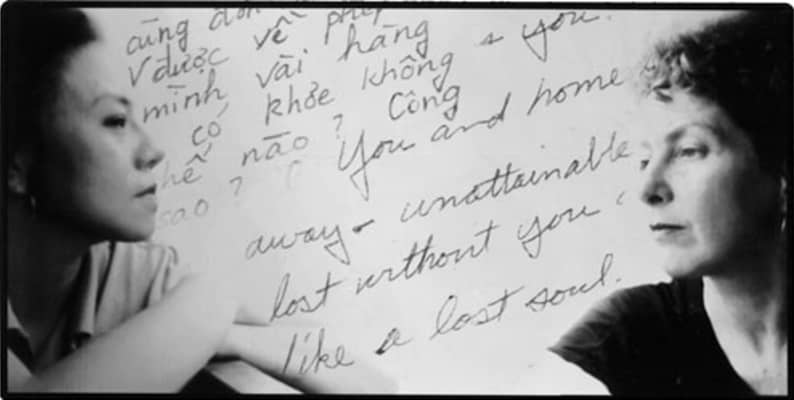 cũng đơn
được về phép
mình vài hàng
có khỏe không
nào? Công
sao?
& you.
You and home
away - unattainable,
lost without you,
like a lost soul.